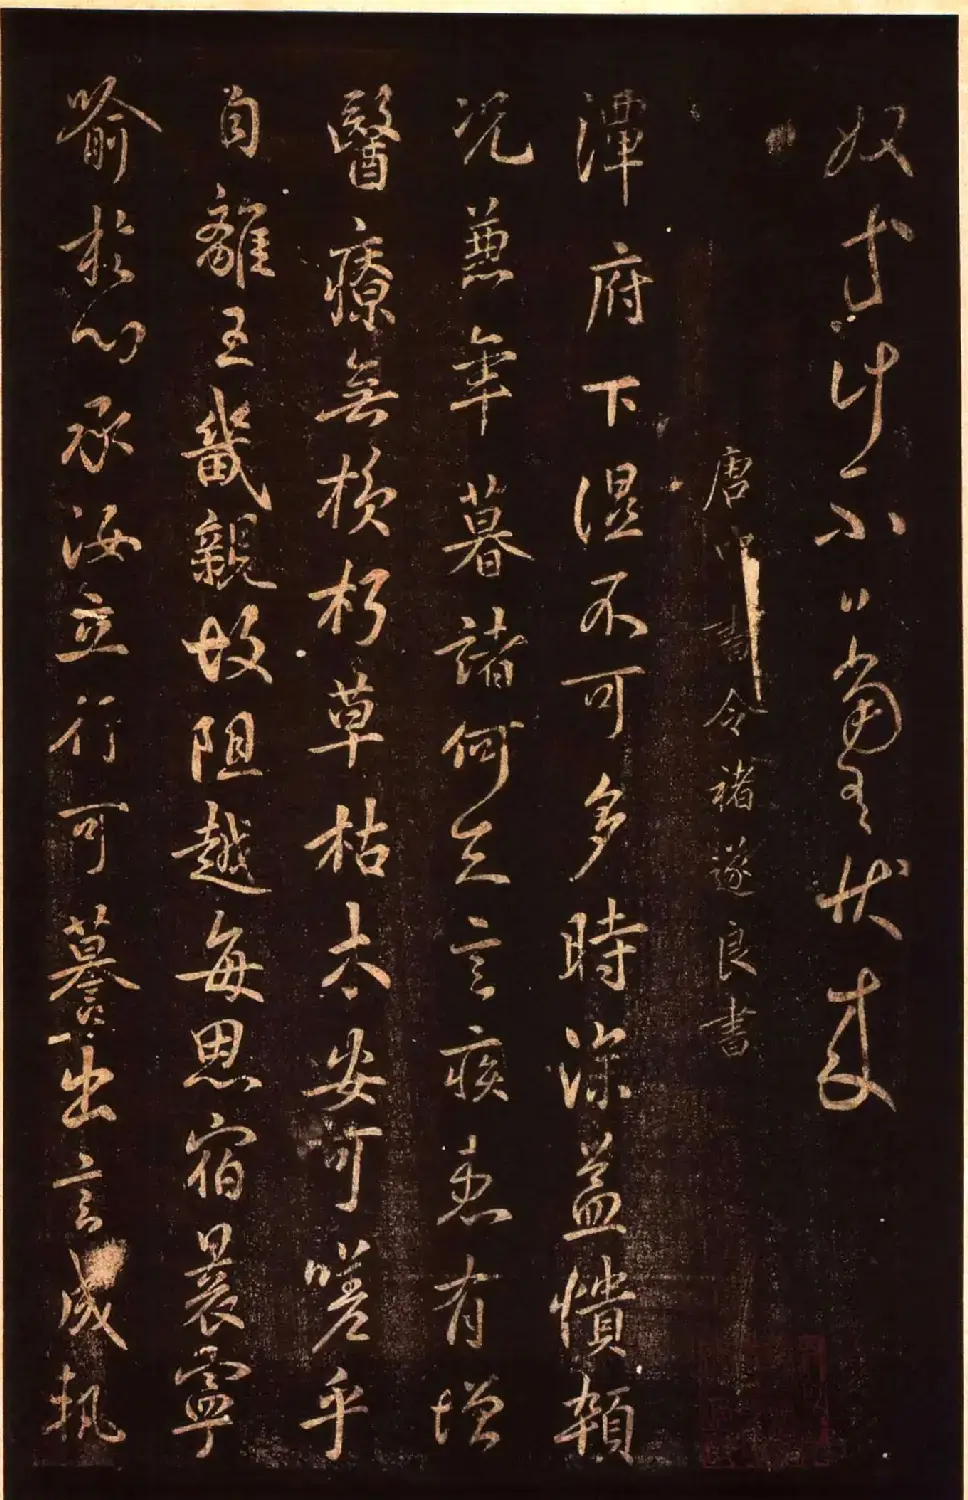 唐中書令褚遂良書
潭府下湿不可多時深益憒
況兼年暮諸何足言疾患有增
醫療無損朽草枯木安可嗟乎
自離王畿親故阻越每思宿晨寧
喻於心承汝立行可慕出言成